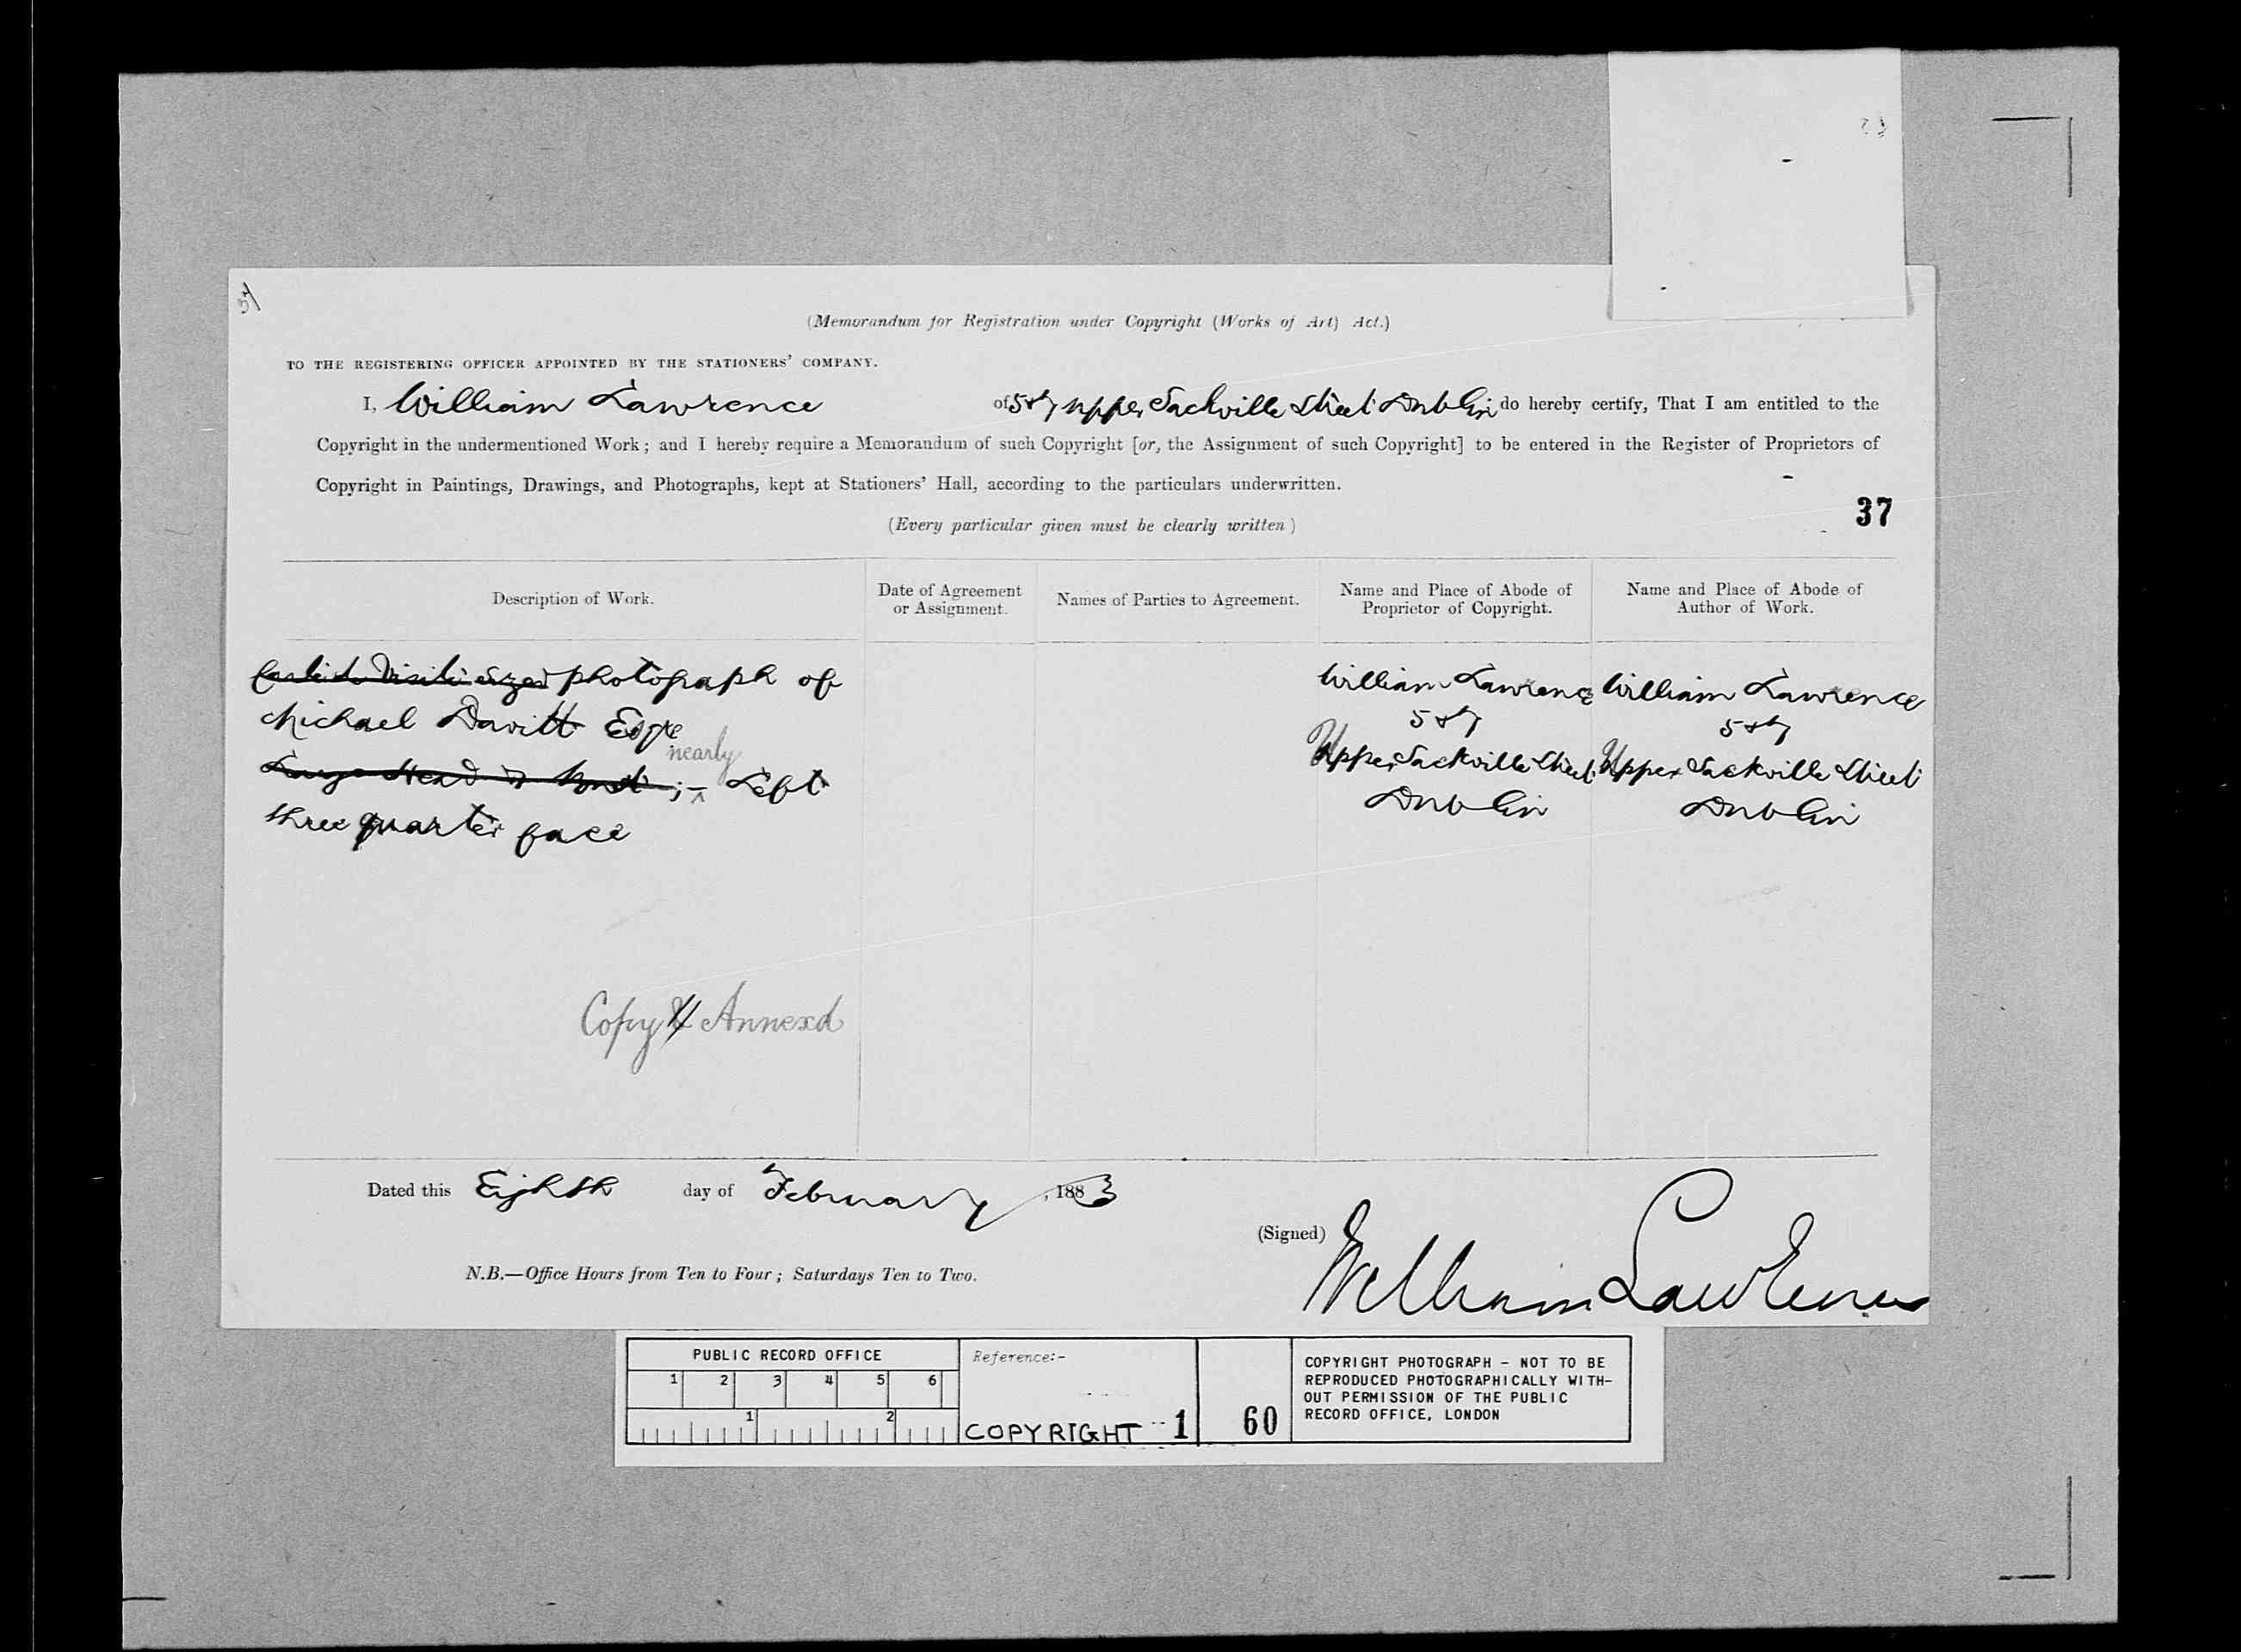 37
(Memorandum for Registration under Copyright (Works of Art) Act.)
TO THE REGISTERING OFFICER APPOINTED BY THE STATIONERS' COMPANY.
I, William Lawrence of 5 & 7 Upper Sackville Street Dublin do hereby certify, That I am entitled to the
Copyright in the undermentioned Work; and I hereby require a Memorandum of such Copyright [or, the Assignment of such Copyright] to be entered in the Register of Proprietors of
Copyright in Paintings, Drawings, and Photographs, kept at Stationers' Hall, according to the particulars underwritten.
37
(Every particular given must be clearly written)
Description of Work.
Date of Agreement
or Assignment.
Names of Parties to Agreement.
Name and Place of Abode of
Proprietor of Copyright.
Name and Place of Abode of
Author of Work.
Carte de Visite sized photograph of
Michael Davitt Esqre
nearly
Large Head & Bust ;– Left
three quarter face
Copy Annexd
William Lawrence
5 & 7
Upper Sackville Street
Dublin
William Lawrence
5 & 7
Upper Sackville Street
Dublin
Dated this Eighth day of February, 1883
(Signed) William Lawrence
N.B.—Office Hours from Ten to Four; Saturdays Ten to Two.
PUBLIC RECORD OFFICE
1 2 3 4 5 6
1 2
Reference:-
COPYRIGHT 1 60
COPYRIGHT PHOTOGRAPH - NOT TO BE
REPRODUCED PHOTOGRAPHICALLY WITH-
OUT PERMISSION OF THE PUBLIC
RECORD OFFICE, LONDON